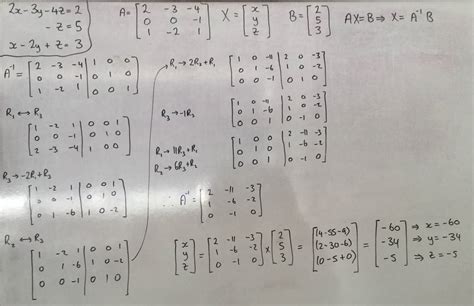 2x-3y-4z=2
-z=5
x-2y+z=3
A=[2 -3 -4
0 0 -1
1 -2 1]
X=[x
y
z]
B=[2
5
3]
AX=B⇒X=A⁻¹B
A⁻¹=[2 -3 -4 | 1 0 0
0 0 -1 | 0 1 0
1 -2 1 | 0 0 1]
R₁↔R₃
[1 -2 1 | 0 0 1
0 0 -1 | 0 1 0
2 -3 -4 | 1 0 0]
R₃→-2R₁+R₃
[1 -2 1 | 0 0 1
0 0 -1 | 0 1 0
0 1 -6 | 1 0 -2]
R₂↔R₃
[1 -2 1 | 0 0 1
0 1 -6 | 1 0 -2
0 0 -1 | 0 1 0]
R₁→2R₂+R₁
[1 0 -11 | 2 0 -3
0 1 -6 | 1 0 -2
0 0 -1 | 0 1 0]
R₃→-1R₃
[1 0 -11 | 2 0 -3
0 1 -6 | 1 0 -2
0 0 1 | 0 -1 0]
R₁→11R₃+R₁
R₂→6R₃+R₂
[1 0 0 | 2 -11 -3
0 1 0 | 1 -6 -2
0 0 1 | 0 -1 0]
∴ A⁻¹=[2 -11 -3
1 -6 -2
0 -1 0]
[x
y
z]=[2 -11 -3
1 -6 -2
0 -1 0]×[2
5
3]=[(4-55-9)
(2-30-6)
(0-5+0)]=[-60
-34
-5]
⇒ x=-60
⇒ y=-34
⇒ z=-5